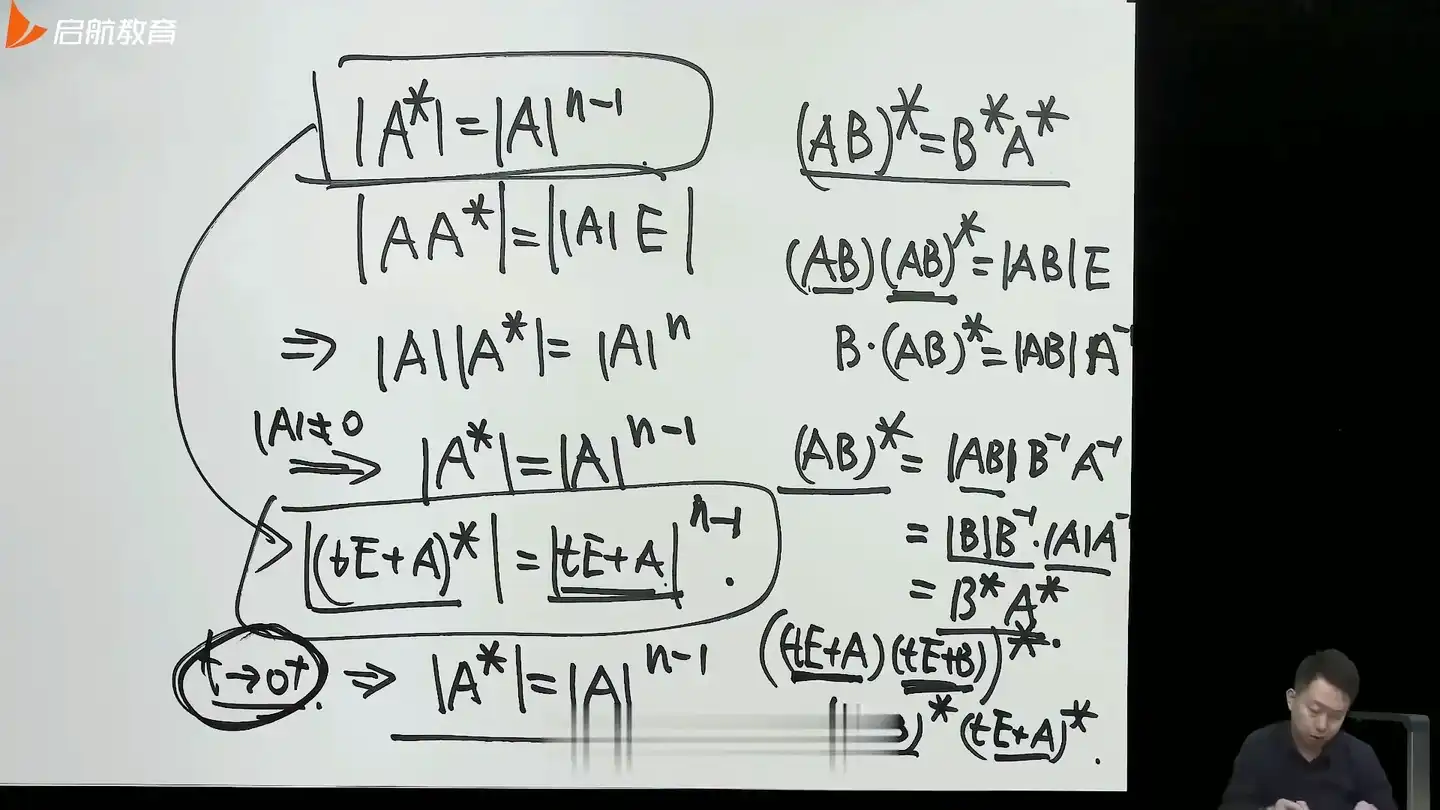 启航教育
|A*| = |A|ⁿ⁻¹
|AA*| = ||A|E|
⇒ |A||A*| = |A|ⁿ
|A|≠0
⟹ |A*| = |A|ⁿ⁻¹
|(tE+A)*| = |tE+A|ⁿ⁻¹.
t→0⁺ ⇒ |A*| = |A|ⁿ⁻¹
(AB)* = B*A*
(AB)(AB)* = |AB|E
B·(AB)* = |AB|A⁻
(AB)* = |AB|B⁻¹A⁻¹
= |B|B⁻¹·|A|A⁻
= B*A*.
((tE+A)(tE+B))*
)*(tE+A)*.